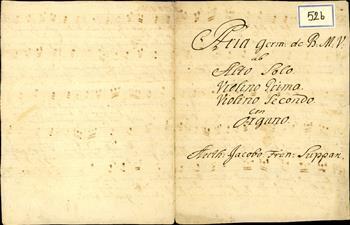 526
Aria Germ: de B. M. V.
ab
Alto Solo
Violino Primo
Violino Secondo
con
Organo.
Auth: Jacobo Fran: Suppan.